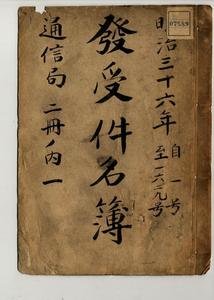 07589
明治三十六年 自一号
至一六九号
發受件名簿
通信局 二冊ノ内一